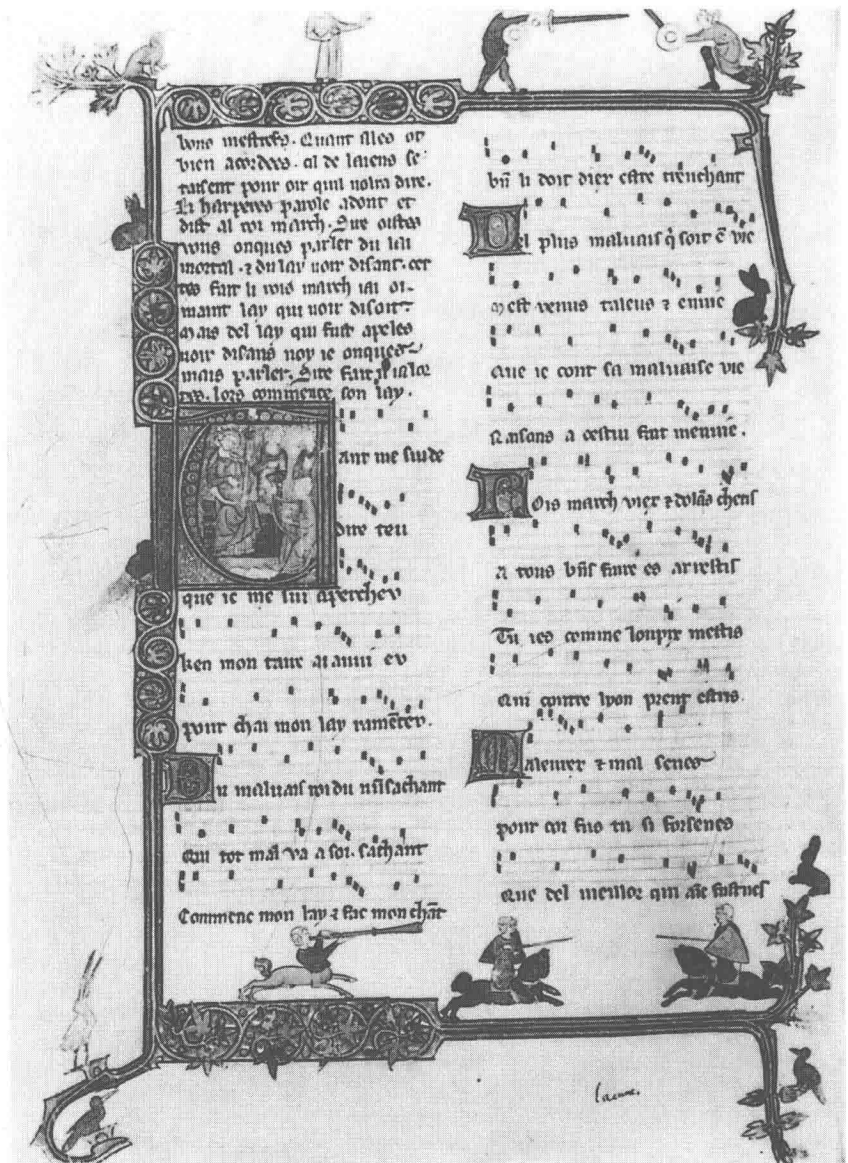 bons mestiers. Quant illes ot
bien acordees. al de laiens se
taisent pour oir quil uolra dire.
Li harperes parole adont et
dist al roi march. Sire oistes
vous onques parler du lai
mortal. ⁊ du lay uoir disant. cer
tes fait li rois march iai oi
maint lay qui uoir disoit.
Mais del lay qui fust apeles
uoir disans noy ie onques
mais parler. Sire fait
lors commence son lay.
ant me sui de
dire teu
que ie me sui apercheu
ken mon taire ai anui eu
pour chai mon lay ramēteu.
Du maluais roi du nūsachant
Qui tot mal va a soi. sachant
Commenc mon lay ⁊ fac mon chāt
bn̄ li doit dier estre trenchant
Del plus maluais q̄ soit ē vie
Mest venus talens ⁊ enuie
Que ie cont sa maluaise vie
Raisons a cestui fait menuie.
Rois march vier ⁊ dolās
A tous bn̄s faire es arrestis
Tu ies comme louprr mestis
Qui contre lyon prent estris
Maleurer ⁊ mal senes
pour coi fus tu si forsenes
Que del meillor qui